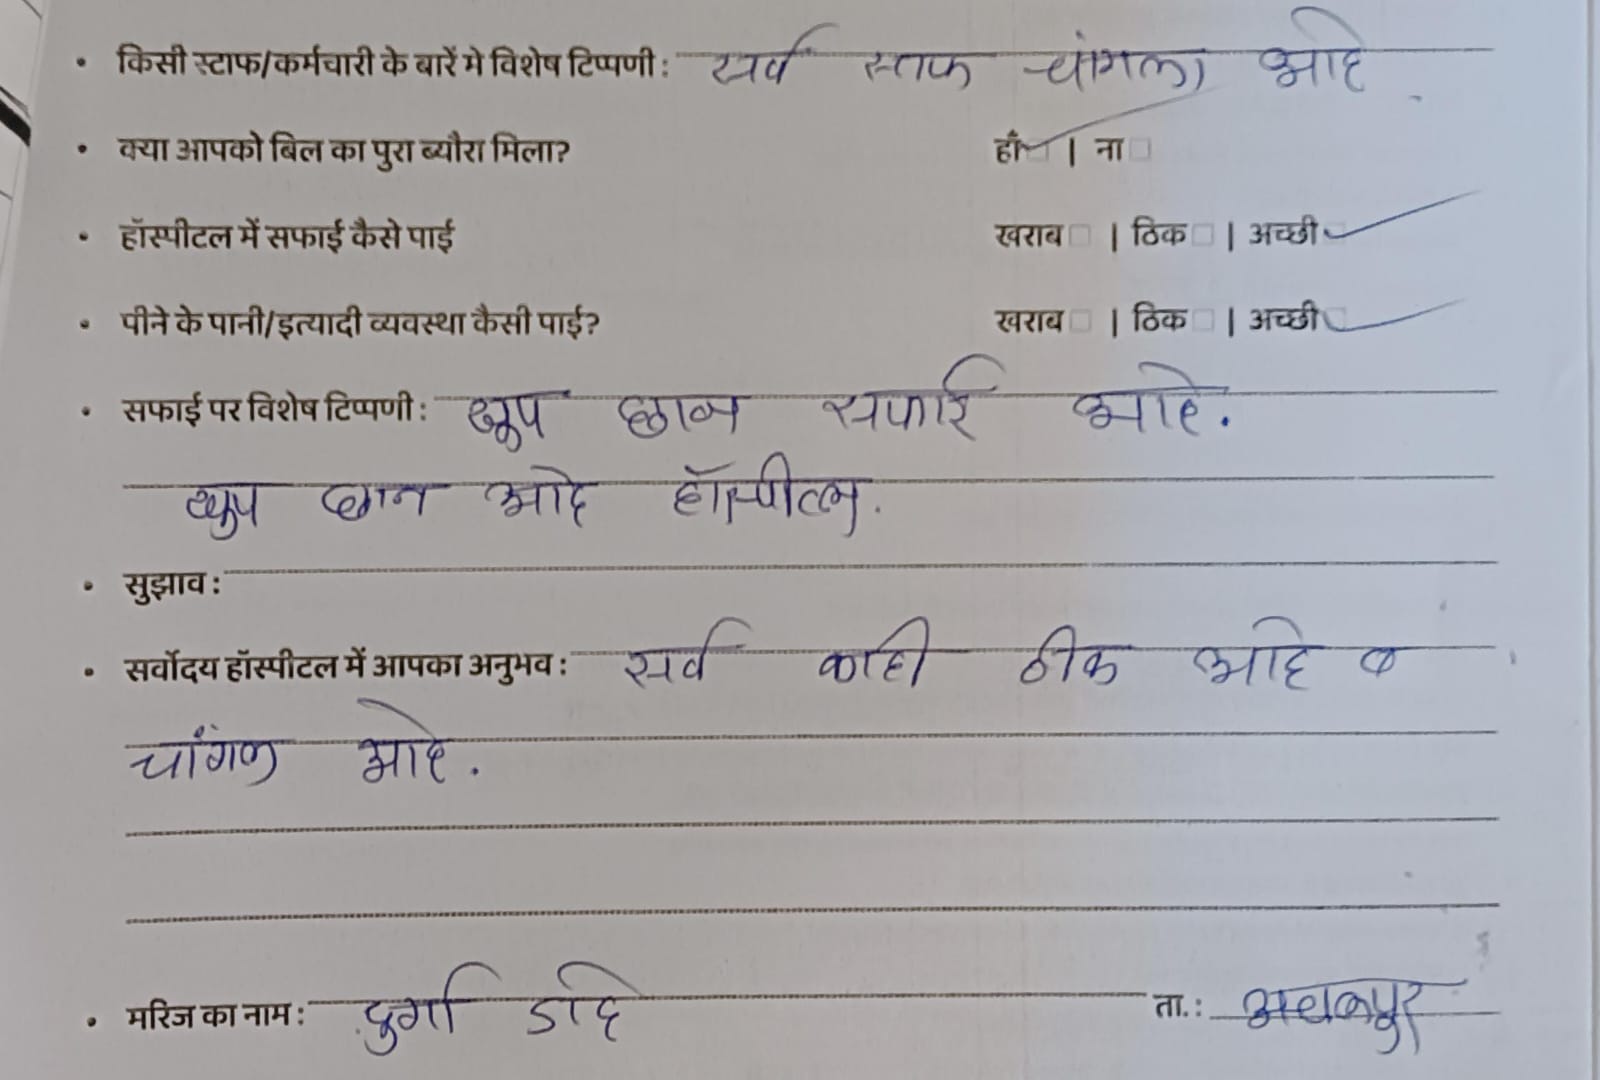 • किसी स्टाफ/कर्मचारी के बारें मे विशेष टिप्पणी : सर्व स्ताफ चांगला आहे
• क्या आपको बिल का पुरा ब्यौरा मिला? हाँ | ना
• हॉस्पीटल में सफाई कैसे पाई खराब | ठिक | अच्छी
• पीने के पानी/इत्यादी व्यवस्था कैसी पाई? खराब | ठिक | अच्छी
• सफाई पर विशेष टिप्पणी : खूप छान सफाई आहे.
खुप छान आहे हॉस्पीटल.
• सुझाव :
• सर्वोदय हॉस्पीटल में आपका अनुभव : सर्व काही ठीक आहे व
चांगल आहे.
• मरिज का नाम : दुर्गा डाहे ता.: अचलपुर